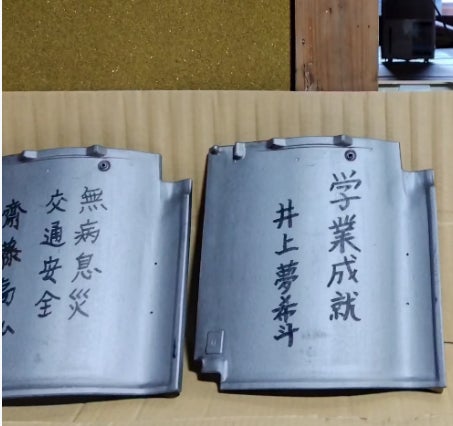 無病息災
交通安全
齋藤
学業成就
井上夢希斗